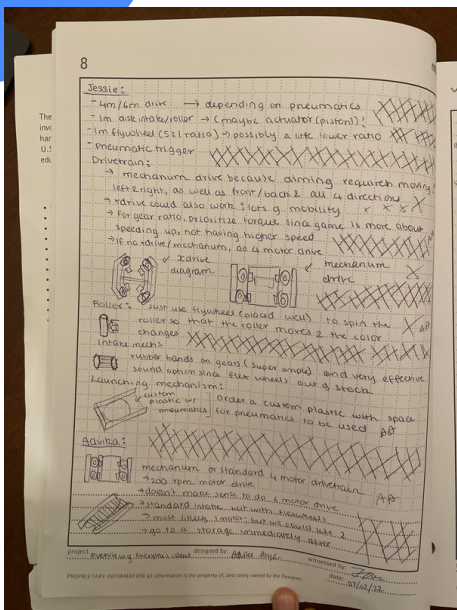 8
The
invo
har
U.S
edu
Jessie:
- 4m/6m drive → depending on pneumatics
- 1m disk intake/roller → (maybe actuator (piston))?
- 1m flywheel (5:1 ratio) → possibly a little lower ratio
- pneumatic trigger
Drivetrain:
→ mechanum drive because aiming requires moving
left & right, as well as front/back & all 4 directions
→ xdrive could also work: lots of mobility
→ For gear ratio, prioritize torque since game is more about
speeding up, not having higher speed
→ if no xdrive/mechanum, do 4 motor drive
xdrive
diagram
mechanum
drive
Roller: Just use flywheel (placed well) to spin the
roller so that the roller moves & the color
changes
AA
Intake mech:
rubber bands on gears (super simple) and very effective
sound option since flex wheels out of stock
Launching mechanism:
custom
plastic w/
pneumatics
order a custom plastic with space
for pneumatics to be used AA
Advika:
mechanum or standard 4 motor drivetrain
→ 200 rpm motor drive
AA
→ doesn't make sense to do 6 motor drive
→ standard intake but with flexwheels
→ most likely 1 motor, but we could use 2
→ go to a storage immediately after
project
designed by:
witnessed by:
date:
PROPRIETARY INFORMATION all information is the property of, and solely owned by the